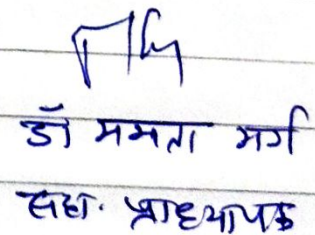 डॉ ममता मर्ग
सहा. प्राध्यापक